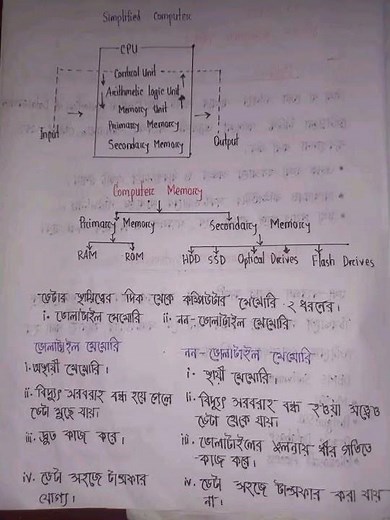 Simplified Computer
CPU
Control Unit
Arithmetic logic Unit
Memory Unit
Primary Memory
Secondary Memory
Input
Output
Computer Memory
Primary Memory
Secondary Memory
RAM
ROM
HDD
SSD
Optical Drives
Flash Drives
ডেটার স্থায়িত্বের দিক থেকে কম্পিউটার মেমোরি ২ ধরনের।
i. ভোলাটাইল মেমোরি ii. নন-ভোলাটাইল মেমোরি
ভোলাটাইল মেমোরি
i. অস্থায়ী মেমোরি।
ii. বিদ্যুৎ সরবরাহ বন্ধ হয়ে গেলে
ডেটা মুছে যায়।
iii. দ্রুত কাজ করে।
iv. ডেটা সহজে ট্রান্সফার
যোগ্য।
নন-ভোলাটাইল মেমোরি
i. স্থায়ী মেমোরি।
ii. বিদ্যুৎ সরবরাহ বন্ধ হওয়া সত্ত্বেও
ডেটা থেকে যায়।
iii. ভোলাটাইলের তুলনায় ধীর গতিতে
কাজ করে।
iv. ডেটা সহজে ট্রান্সফার করা যায়
না।